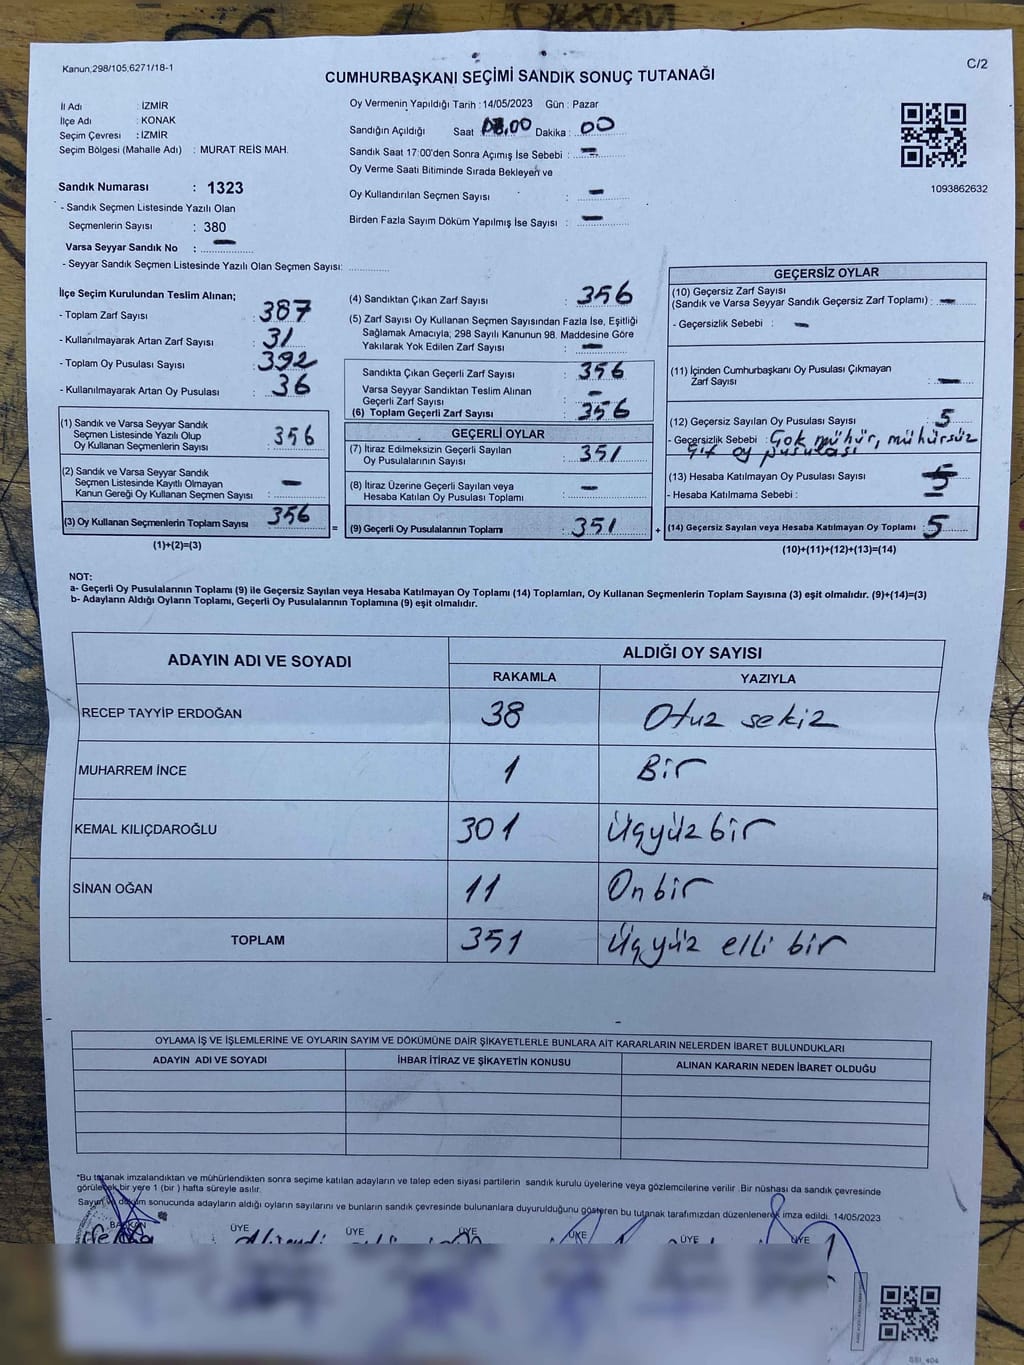 Kanun,298/105,6271/18-1
C/2
CUMHURBAŞKANI SEÇİMİ SANDIK SONUÇ TUTANAĞI
İl Adı : İZMİR
İlçe Adı : KONAK
Seçim Çevresi : İZMİR
Seçim Bölgesi (Mahalle Adı) : MURAT REİS MAH.
Sandık Numarası : 1323
- Sandık Seçmen Listesinde Yazılı Olan
Seçmenlerin Sayısı : 380
Varsa Seyyar Sandık No : —
- Seyyar Sandık Seçmen Listesinde Yazılı Olan Seçmen Sayısı: ..............
Oy Vermenin Yapıldığı Tarih : 14/05/2023 Gün : Pazar
Sandığın Açıldığı Saat 08.00 Dakika : 00
Sandık Saat 17:00'den Sonra Açımış İse Sebebi : —
Oy Verme Saati Bitiminde Sırada Bekleyen ve
Oy Kullandırılan Seçmen Sayısı : —
Birden Fazla Sayım Döküm Yapılmış İse Sayısı : —
1093862632
İlçe Seçim Kurulundan Teslim Alınan;
- Toplam Zarf Sayısı : 387
- Kullanılmayarak Artan Zarf Sayısı : 31
- Toplam Oy Pusulası Sayısı : 392
- Kullanılmayarak Artan Oy Pusulası : 36
(1) Sandık ve Varsa Seyyar Sandık
Seçmen Listesinde Yazılı Olup
Oy Kullanan Seçmenlerin Sayısı : 356
(2) Sandık ve Varsa Seyyar Sandık
Seçmen Listesinde Kayıtlı Olmayan
Kanun Gereği Oy Kullanan Seçmen Sayısı : —
(3) Oy Kullanan Seçmenlerin Toplam Sayısı 356
(1)+(2)=(3)
(4) Sandıktan Çıkan Zarf Sayısı : 356
(5) Zarf Sayısı Oy Kullanan Seçmen Sayısından Fazla İse, Eşitliği
Sağlamak Amacıyla; 298 Sayılı Kanunun 98. Maddesine Göre
Yakılarak Yok Edilen Zarf Sayısı : —
Sandıkta Çıkan Geçerli Zarf Sayısı : 356
Varsa Seyyar Sandıktan Teslim Alınan
Geçerli Zarf Sayısı : —
(6) Toplam Geçerli Zarf Sayısı : 356
GEÇERLİ OYLAR
(7) İtiraz Edilmeksizin Geçerli Sayılan
Oy Pusulalarının Sayısı : 351
(8) İtiraz Üzerine Geçerli Sayılan veya
Hesaba Katılan Oy Pusulası Toplamı : —
= (9) Geçerli Oy Pusulalarının Toplamı : 351
GEÇERSİZ OYLAR
(10) Geçersiz Zarf Sayısı
(Sandık ve Varsa Seyyar Sandık Geçersiz Zarf Toplamı) : —
- Geçersizlik Sebebi : —
(11) İçinden Cumhurbaşkanı Oy Pusulası Çıkmayan
Zarf Sayısı : —
(12) Geçersiz Sayılan Oy Pusulası Sayısı : 5
- Geçersizlik Sebebi : Çok mühür, mühürsüz
çift oy pusulası
(13) Hesaba Katılmayan Oy Pusulası Sayısı : 5
- Hesaba Katılmama Sebebi : —
+ (14) Geçersiz Sayılan veya Hesaba Katılmayan Oy Toplamı : 5
(10)+(11)+(12)+(13)=(14)
NOT:
a- Geçerli Oy Pusulalarının Toplamı (9) ile Geçersiz Sayılan veya Hesaba Katılmayan Oy Toplamı (14) Toplamları, Oy Kullanan Seçmenlerin Toplam Sayısına (3) eşit olmalıdır. (9)+(14)=(3)
b- Adayların Aldığı Oyların Toplamı, Geçerli Oy Pusulalarının Toplamına (9) eşit olmalıdır.
ADAYIN ADI VE SOYADI ALDIĞI OY SAYISI
RAKAMLA YAZIYLA
RECEP TAYYİP ERDOĞAN 38 Otuz sekiz
MUHARREM İNCE 1 Bir
KEMAL KILIÇDAROĞLU 301 Üçyüz bir
SİNAN OĞAN 11 On bir
TOPLAM 351 Üçyüz elli bir
OYLAMA İŞ VE İŞLEMLERİNE VE OYLARIN SAYIM VE DÖKÜMÜNE DAİR ŞİKAYETLERLE BUNLARA AİT KARARLARIN NELERDEN İBARET BULUNDUKLARI
ADAYIN ADI VE SOYADI İHBAR İTİRAZ VE ŞİKAYETİN KONUSU ALINAN KARARIN NEDEN İBARET OLDUĞU
*Bu tutanak imzalandıktan ve mühürlendikten sonra seçime katılan adayların ve talep eden siyasi partilerin sandık kurulu üyelerine veya gözlemcilerine verilir. Bir nüshası da sandık çevresinde
görülecek bir yere 1 (bir) hafta süreyle asılır.
Sayım ve döküm sonucunda adayların aldığı oyların sayılarını ve bunların sandık çevresinde bulunanlara duyurulduğunu gösteren bu tutanak tarafımızdan düzenlenerek imza edildi. 14/05/2023
BAŞKAN ÜYE ÜYE ÜYE ÜYE ÜYE ÜYE